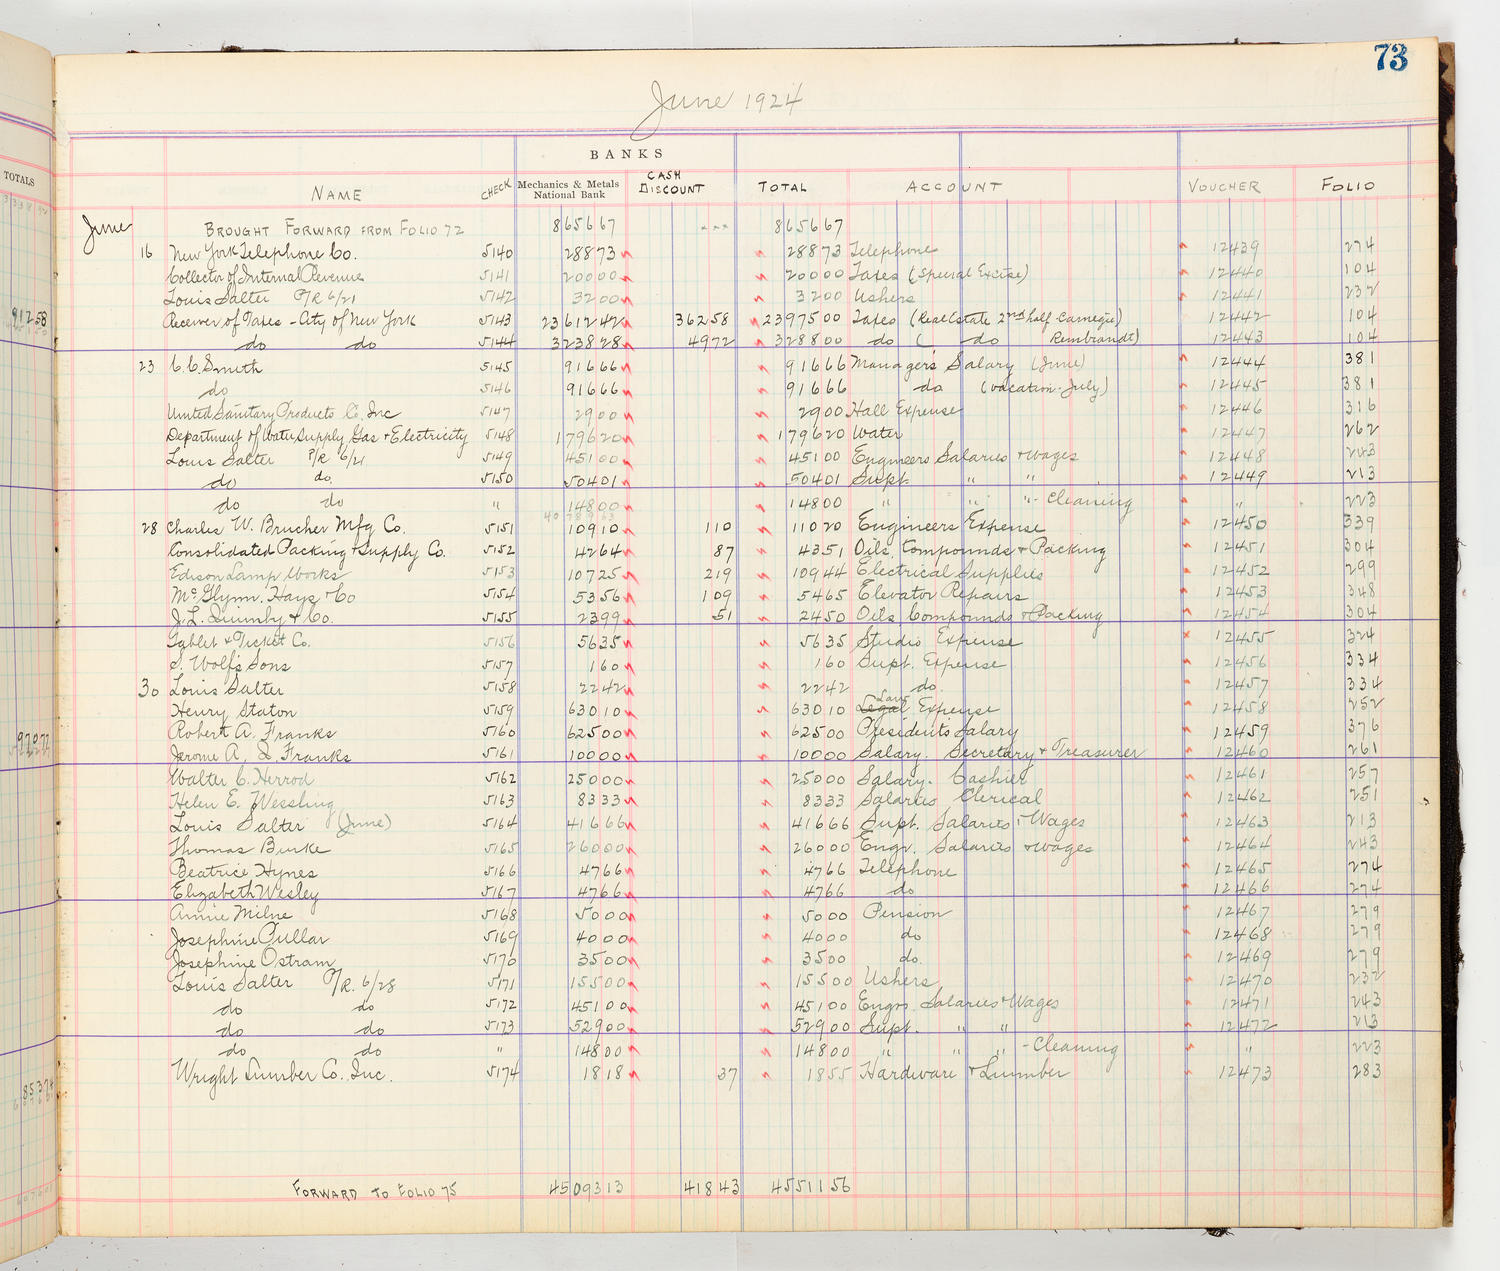 73
June 1924
TOTALS
BANKS
NAME CHECK Mechanics & Metals National Bank CASH DISCOUNT TOTAL ACCOUNT VOUCHER FOLIO
June BROUGHT FORWARD FROM FOLIO 72 865667 --- 865667
16 New York Telephone Co. 5140 28873 28873 Telephone 12439 274
Collector of Internal Revenue 5141 20000 20000 Taxes (Special Excise) 12440 104
Louis Salter P/R 6/21 5142 3200 3200 Ushers 12441 232
91258 Receiver of Taxes - City of New York 5143 2361242 36258 2397500 Taxes (Real Estate 2nd half Carnegie) 12442 104
do do 5144 323828 4972 328800 do ( do Rembrandt) 12443 104
23 C.C. Smith 5145 91666 91666 Manager's Salary (June) 12444 381
do 5146 91666 91666 do (vacation-July) 12445 381
United Sanitary Products Co, Inc 5147 2900 2900 Hall Expense 12446 316
Department of Water Supply, Gas & Electricity 5148 179620 179620 Water 12447 262
Louis Salter P/R 6/21 5149 45100 45100 Engineers Salaries & Wages 12448 243
do do 5150 50401 50401 Supt. " " 12449 213
do do " 14800 14800 " " "- Cleaning " 223
28 Charles W. Brucher Mfg Co. 5151 10910 110 11020 Engineers Expense 12450 339
Consolidated Packing & Supply Co. 5152 4264 87 4351 Oils, Compounds & Packing 12451 304
Edison Lamp Works 5153 10725 219 10944 Electrical Supplies 12452 299
McGlynn, Hays & Co 5154 5356 109 5465 Elevator Repairs 12453 348
J. L. Quimby & Co. 5155 2399 51 2450 Oils, Compounds & Packing 12454 304
Tablet & Ticket Co. 5156 5635 5635 Studio Expense 12455 324
S. Wolf's Sons 5157 160 160 Supt. Expense 12456 334
30 Louis Salter 5158 2242 2242 do. 12457 334
Henry Staton 5159 63010 63010 Legal Law Expense 12458 252
97077 Robert A. Franks 5160 62500 62500 Presidents Salary 12459 376
Jerome A. Q. Franks 5161 10000 10000 Salary. Secretary & Treasurer 12460 261
Walter C. Herrod 5162 25000 25000 Salary. Cashier 12461 257
Helen E. Wessling 5163 8333 8333 Salaries Clerical 12462 251
Louis Salter (June) 5164 41666 41666 Supt. Salaries & Wages 12463 213
Thomas Burke 5165 26000 26000 Engr. Salaries & Wages 12464 243
Beatrice Hynes 5166 4766 4766 Telephone 12465 274
Elizabeth Wesley 5167 4766 4766 do 12466 274
Annie Milne 5168 5000 5000 Pension 12467 279
Josephine Cullar 5169 4000 4000 do 12468 279
Josephine Ostram 5170 3500 3500 do. 12469 279
Louis Salter P/R. 6/28 5171 15500 15500 Ushers 12470 232
do do 5172 45100 45100 Engrs. Salaries & Wages 12471 243
do do 5173 52900 52900 Supt. " " 12472 213
do do " 14800 14800 " " " - Cleaning " 223
85374 Wright Lumber Co. Inc. 5174 1818 37 1855 Hardware & Lumber 12473 283
FORWARD TO FOLIO 75 4509313 41843 4551156